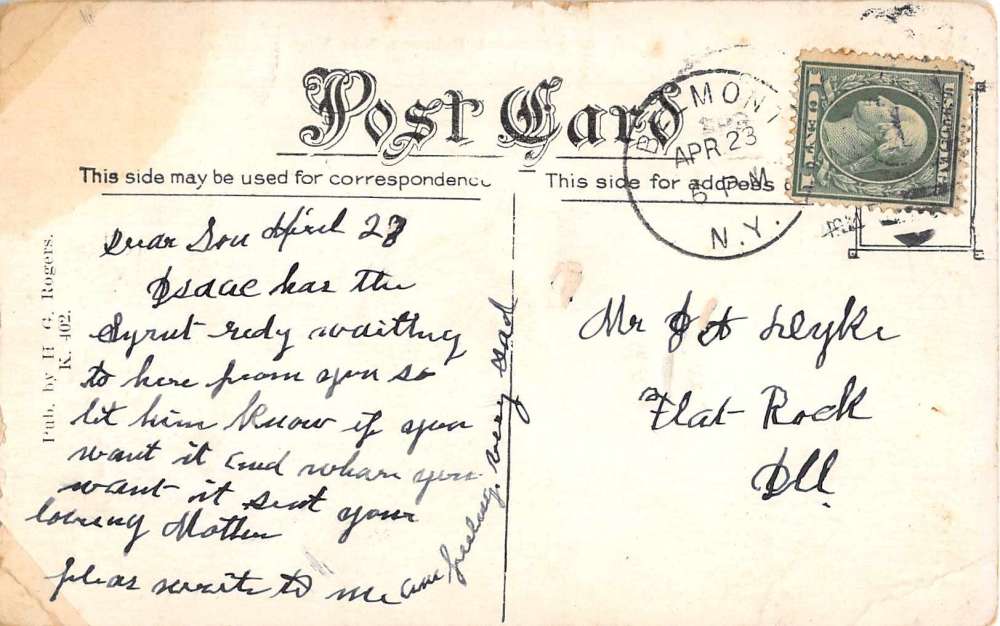 Post Card
This side may be used for correspondence
This side for address
BELMONT
APR 23
6 P.M.
N.Y.
Pub. by H. G. Rogers.
K. 402.
Dear Son April 23
Isaac has the
Syrut redy waitting
to here from you so
let him know if you
want it and whare you
want it sent your
loveing Mother
pleas write to me am feeling very sad
Mr A Dyke
Flat Rock
Ill